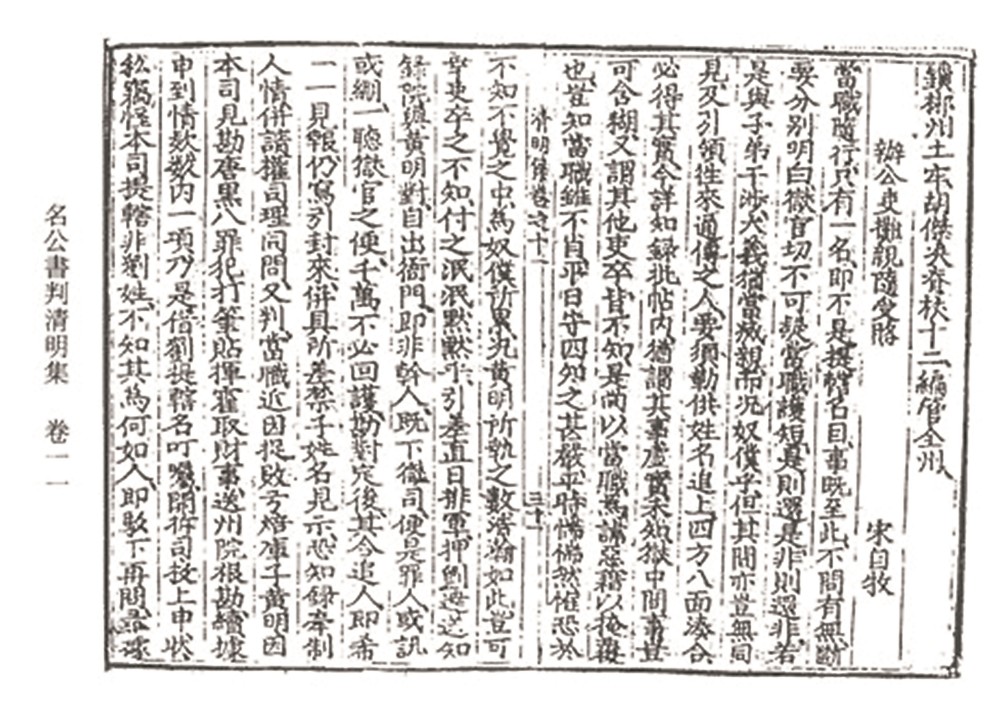 鎖郴州土牢胡傑決脊杖十二編管全州
辦公吏攤親隨受賂　宋自牧
當職隨行只有一名即不是提轄名目事既至此不問有無斷
要分別明白獄官切不可疑當職護短是則還是非則還非若
是與子弟干涉大義猶當滅親而況奴僕乎但其間亦豈無同
見及引領往來通傳之人要須勒供姓名追上四方八面湊合
必得其實今詳知錄批帖內猶謂其事虛實未知獄中間事豈
可含糊又謂其他吏卒皆不知是尚以當職為諱惡藉以掩覆
也豈知當職雖不肖平日守四知之甚嚴平時惴惴然惟恐於
清明集卷之十一　三十
不知不覺之中為奴僕所累況黃明所執之數淆瀚如此豈可
幸吏卒之不知付之泯泯默默乎引差直日排軍押劉逕送知
錄院與黃明對自出衙門即非幹人既下獄司便是罪人或訊
或綳一聽獄官之便千萬不必回護勘對定後其合追人即希
一一見報仍寫引封來併具所差禁子姓名見示恐知錄牽制
人情併請權司理同問又判當職近因捉敗亏焙庫子黃明因
本司見勘唐黑八罪犯打筆貼揮霍取財事送州院根勘續據
申到情款數內一項乃是借劉提轄名叮囑開拆司投上申狀
私竊怪本司提轄非劉姓不知其為何如人即敺下再問尋據
名公書判清明集　卷一一